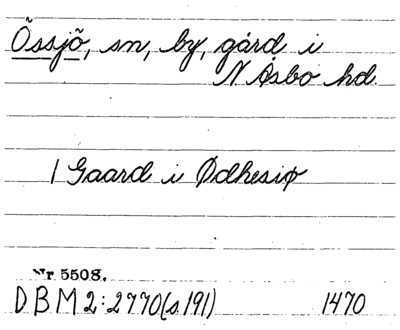 Össjö, sn, by, gård i
N Åsbo hd
1 Gaard i Ødhesiø
Nr 5508.
DBM 2:2770 (s 191) 1470